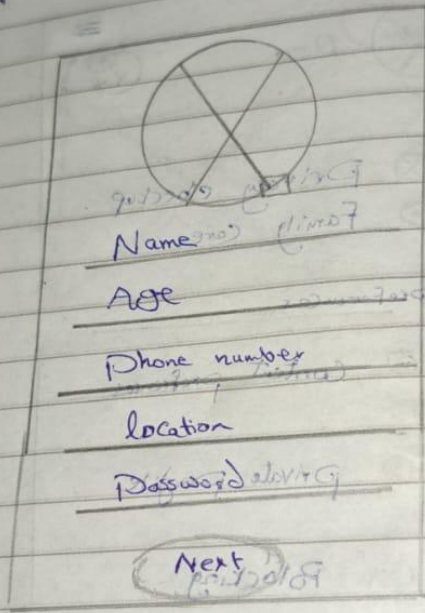 Name
Age
phone number
location
password
Next